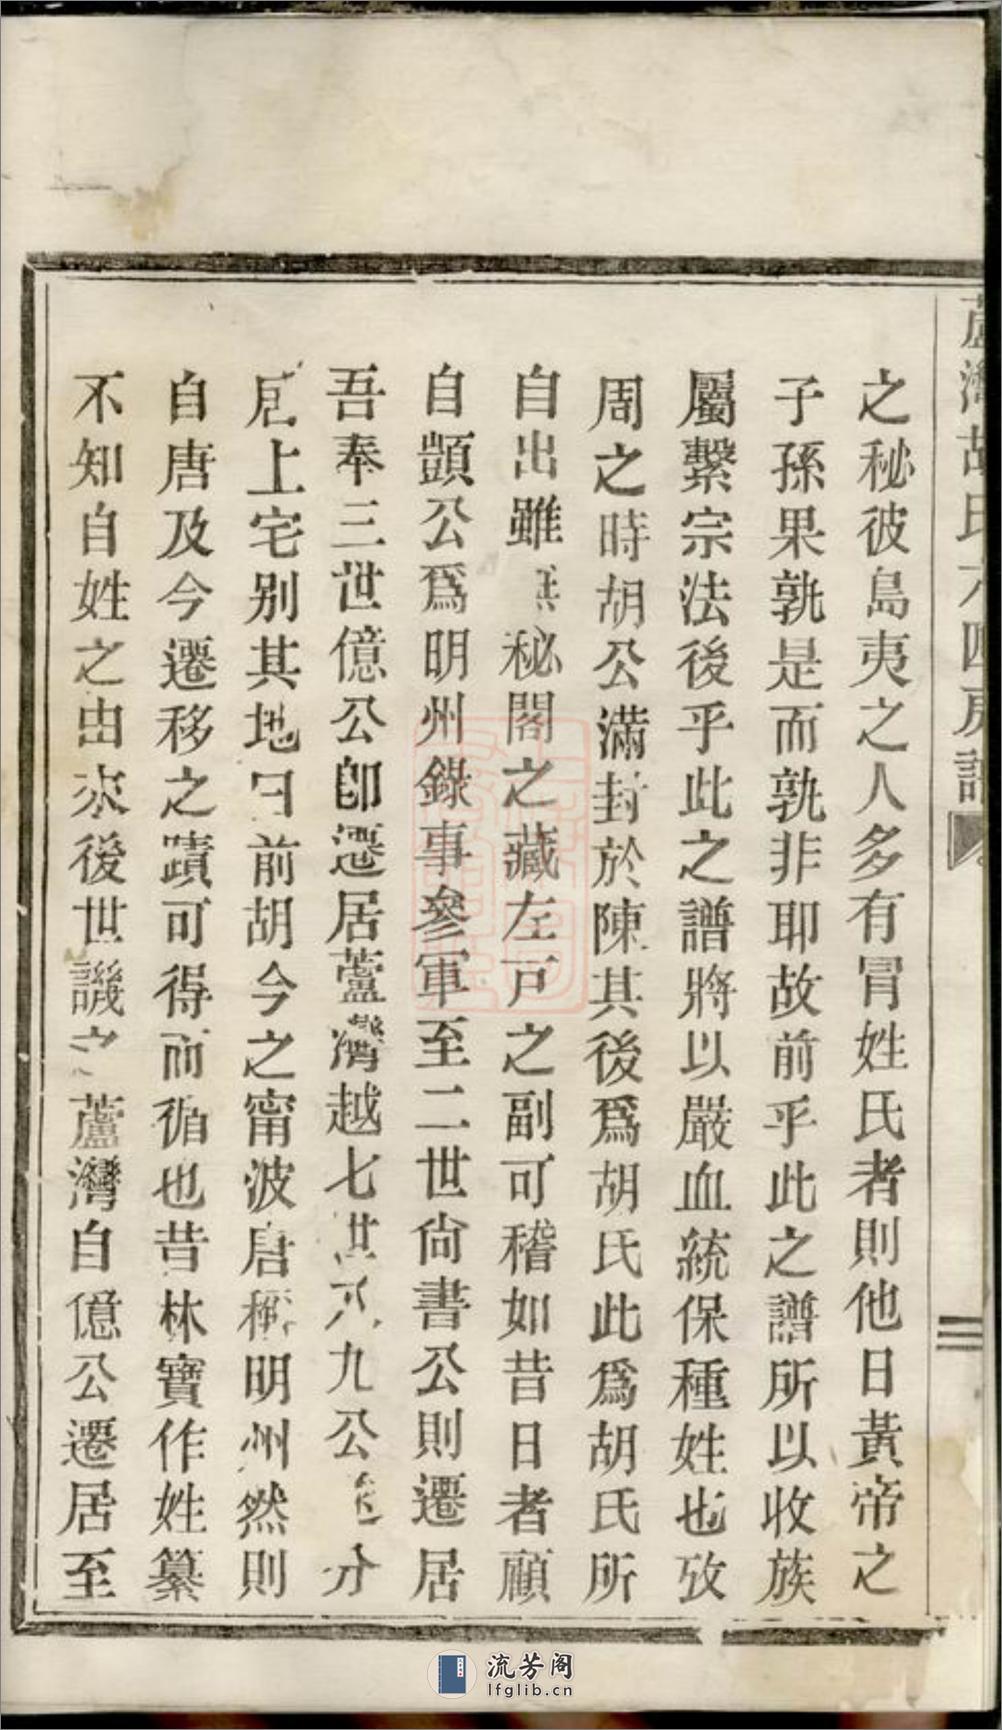 蘆灣胡氏六四房譜
之秘彼島夷之人多有冒姓氏者則他日黃帝之
子孫果孰是而孰非耶故前乎此之譜所以收族
屬繫宗法後乎此之譜將以嚴血統保種姓也攷
周之時胡公滿封於陳其後爲胡氏此爲胡氏所
自出雖無秘閣之藏左戸之副可稽如昔日者顧
自顗公爲明州錄事參軍至二世尙書公則遷居
吾奉三世億公卽遷居蘆灣越七世六九公 分
居上宅別其地曰前胡今之甯波唐稱明州然則
自唐及今遷移之蹟可得而循也昔林寶作姓纂
不知自姓之由來後世譏之蘆灣自億公遷居至
流芳阁
lfglib.cn